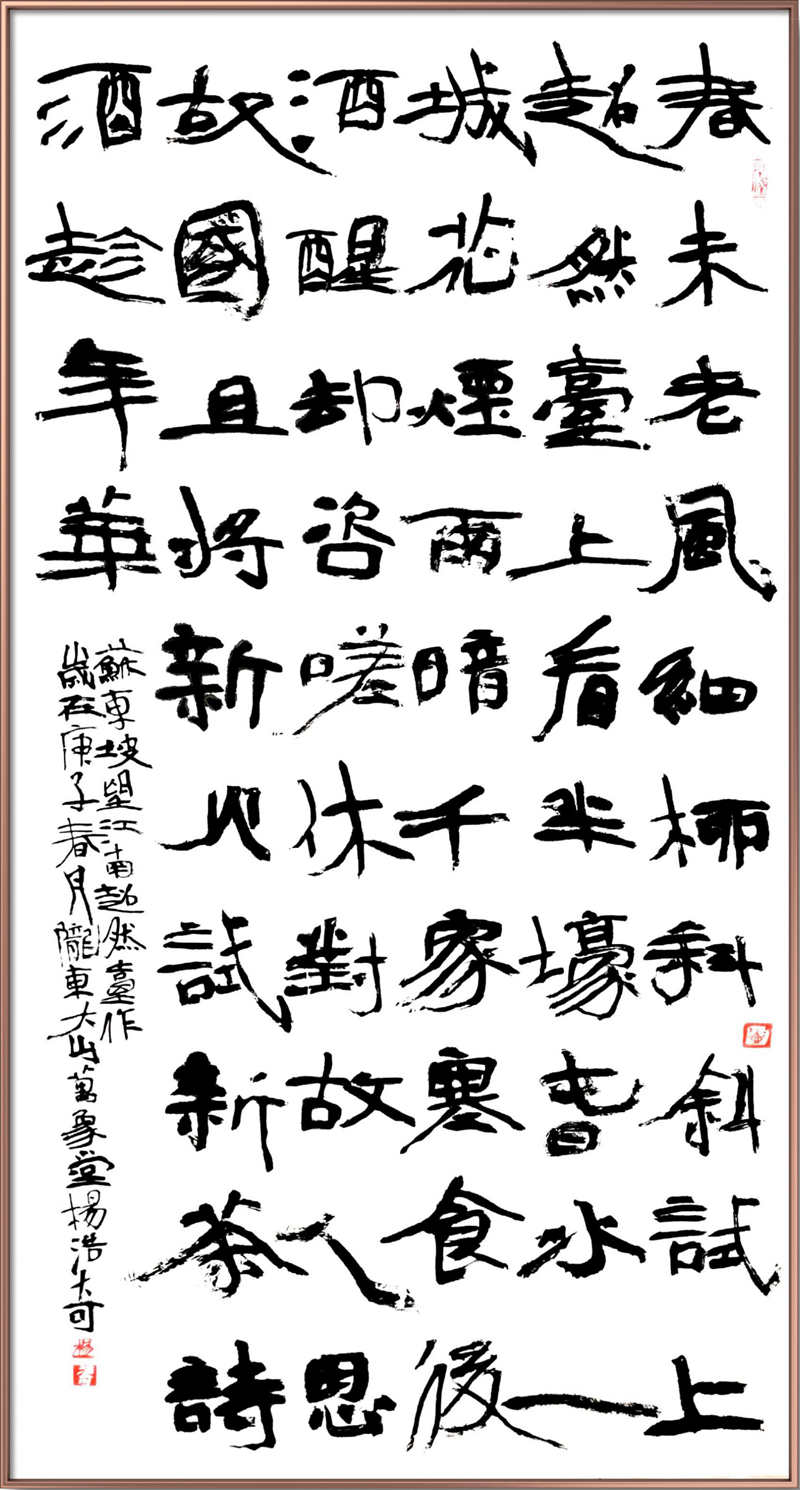 春未老風細柳斜斜試上
超然臺上看半壕春水一
城花煙雨暗千家寒食後
酒醒却咨嗟休對故人思
故國且將新火試新茶詩
酒趁年華
蘇東坡望江南超然臺作
歲在庚子春月隴東大山萬象堂楊浩大可